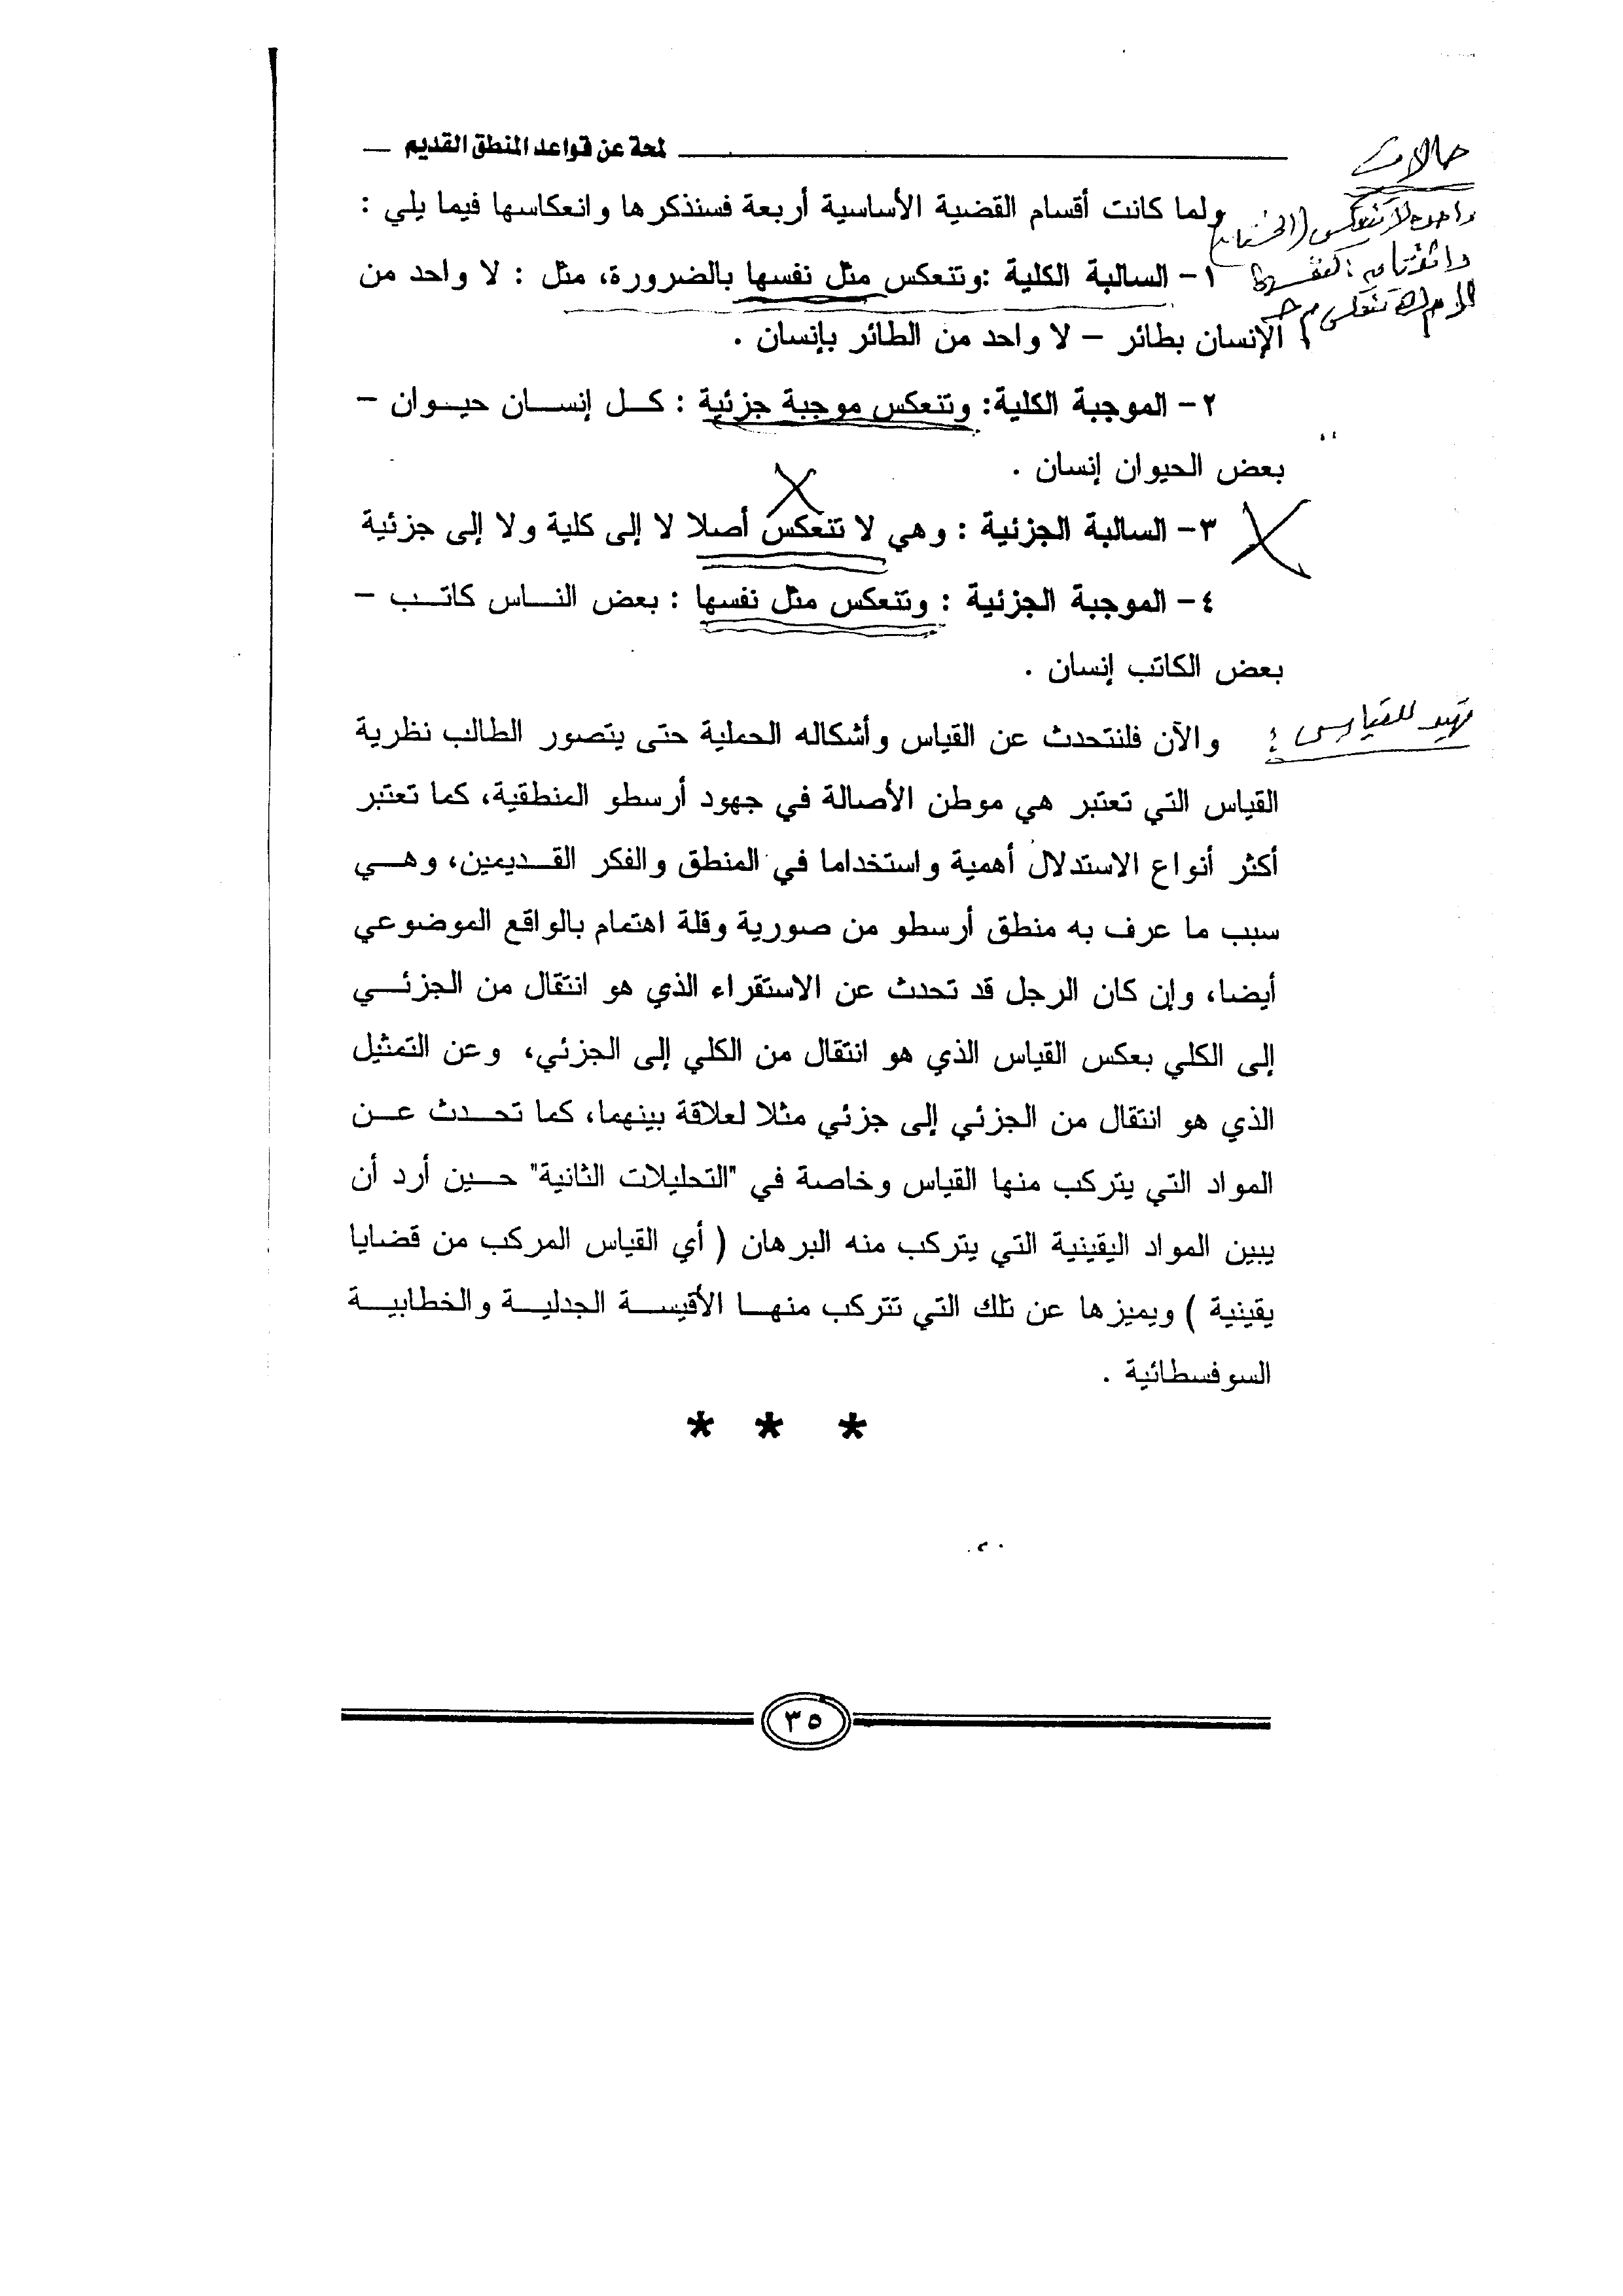 لمحة عن قواعد المنطق القديم
حالات
ولما كانت أقسام القضية الأساسية أربعة فسنذكرها وانعكاسها فيما يلي :
واحدة لا تنعكس
١- السالبة الكلية :وتنعكس مثل نفسها بالضرورة، مثل : لا واحد من
الإنسان بطائر – لا واحد من الطائر بإنسان .
٢- الموجبة الكلية: وتنعكس موجبة جزئية : كل إنسان حيوان –
بعض الحيوان إنسان .
٣- السالبة الجزئية : وهي لا تنعكس أصلا لا إلى كلية ولا إلى جزئية
٤- الموجبة الجزئية : وتنعكس مثل نفسها : بعض الناس كاتب –
بعض الكاتب إنسان .
تمهيد للقياس :
والآن فلنتحدث عن القياس وأشكاله الحملية حتى يتصور الطالب نظرية
القياس التي تعتبر هي موطن الأصالة في جهود أرسطو المنطقية، كما تعتبر
أكثر أنواع الاستدلال أهمية واستخداما في المنطق والفكر القديمين، وهي
سبب ما عرف به منطق أرسطو من صورية وقلة اهتمام بالواقع الموضوعي
أيضا، وإن كان الرجل قد تحدث عن الاستقراء الذي هو انتقال من الجزئي
إلى الكلي بعكس القياس الذي هو انتقال من الكلي إلى الجزئي، وعن التمثيل
الذي هو انتقال من الجزئي إلى جزئي مثلا لعلاقة بينهما، كما تحدث عن
المواد التي يتركب منها القياس وخاصة في "التحليلات الثانية" حين أرد أن
يبين المواد اليقينية التي يتركب منه البرهان ( أي القياس المركب من قضايا
يقينية ) ويميزها عن تلك التي تتركب منها الأقيسة الجدلية والخطابية
السوفسطائية .
* * *
٣٥